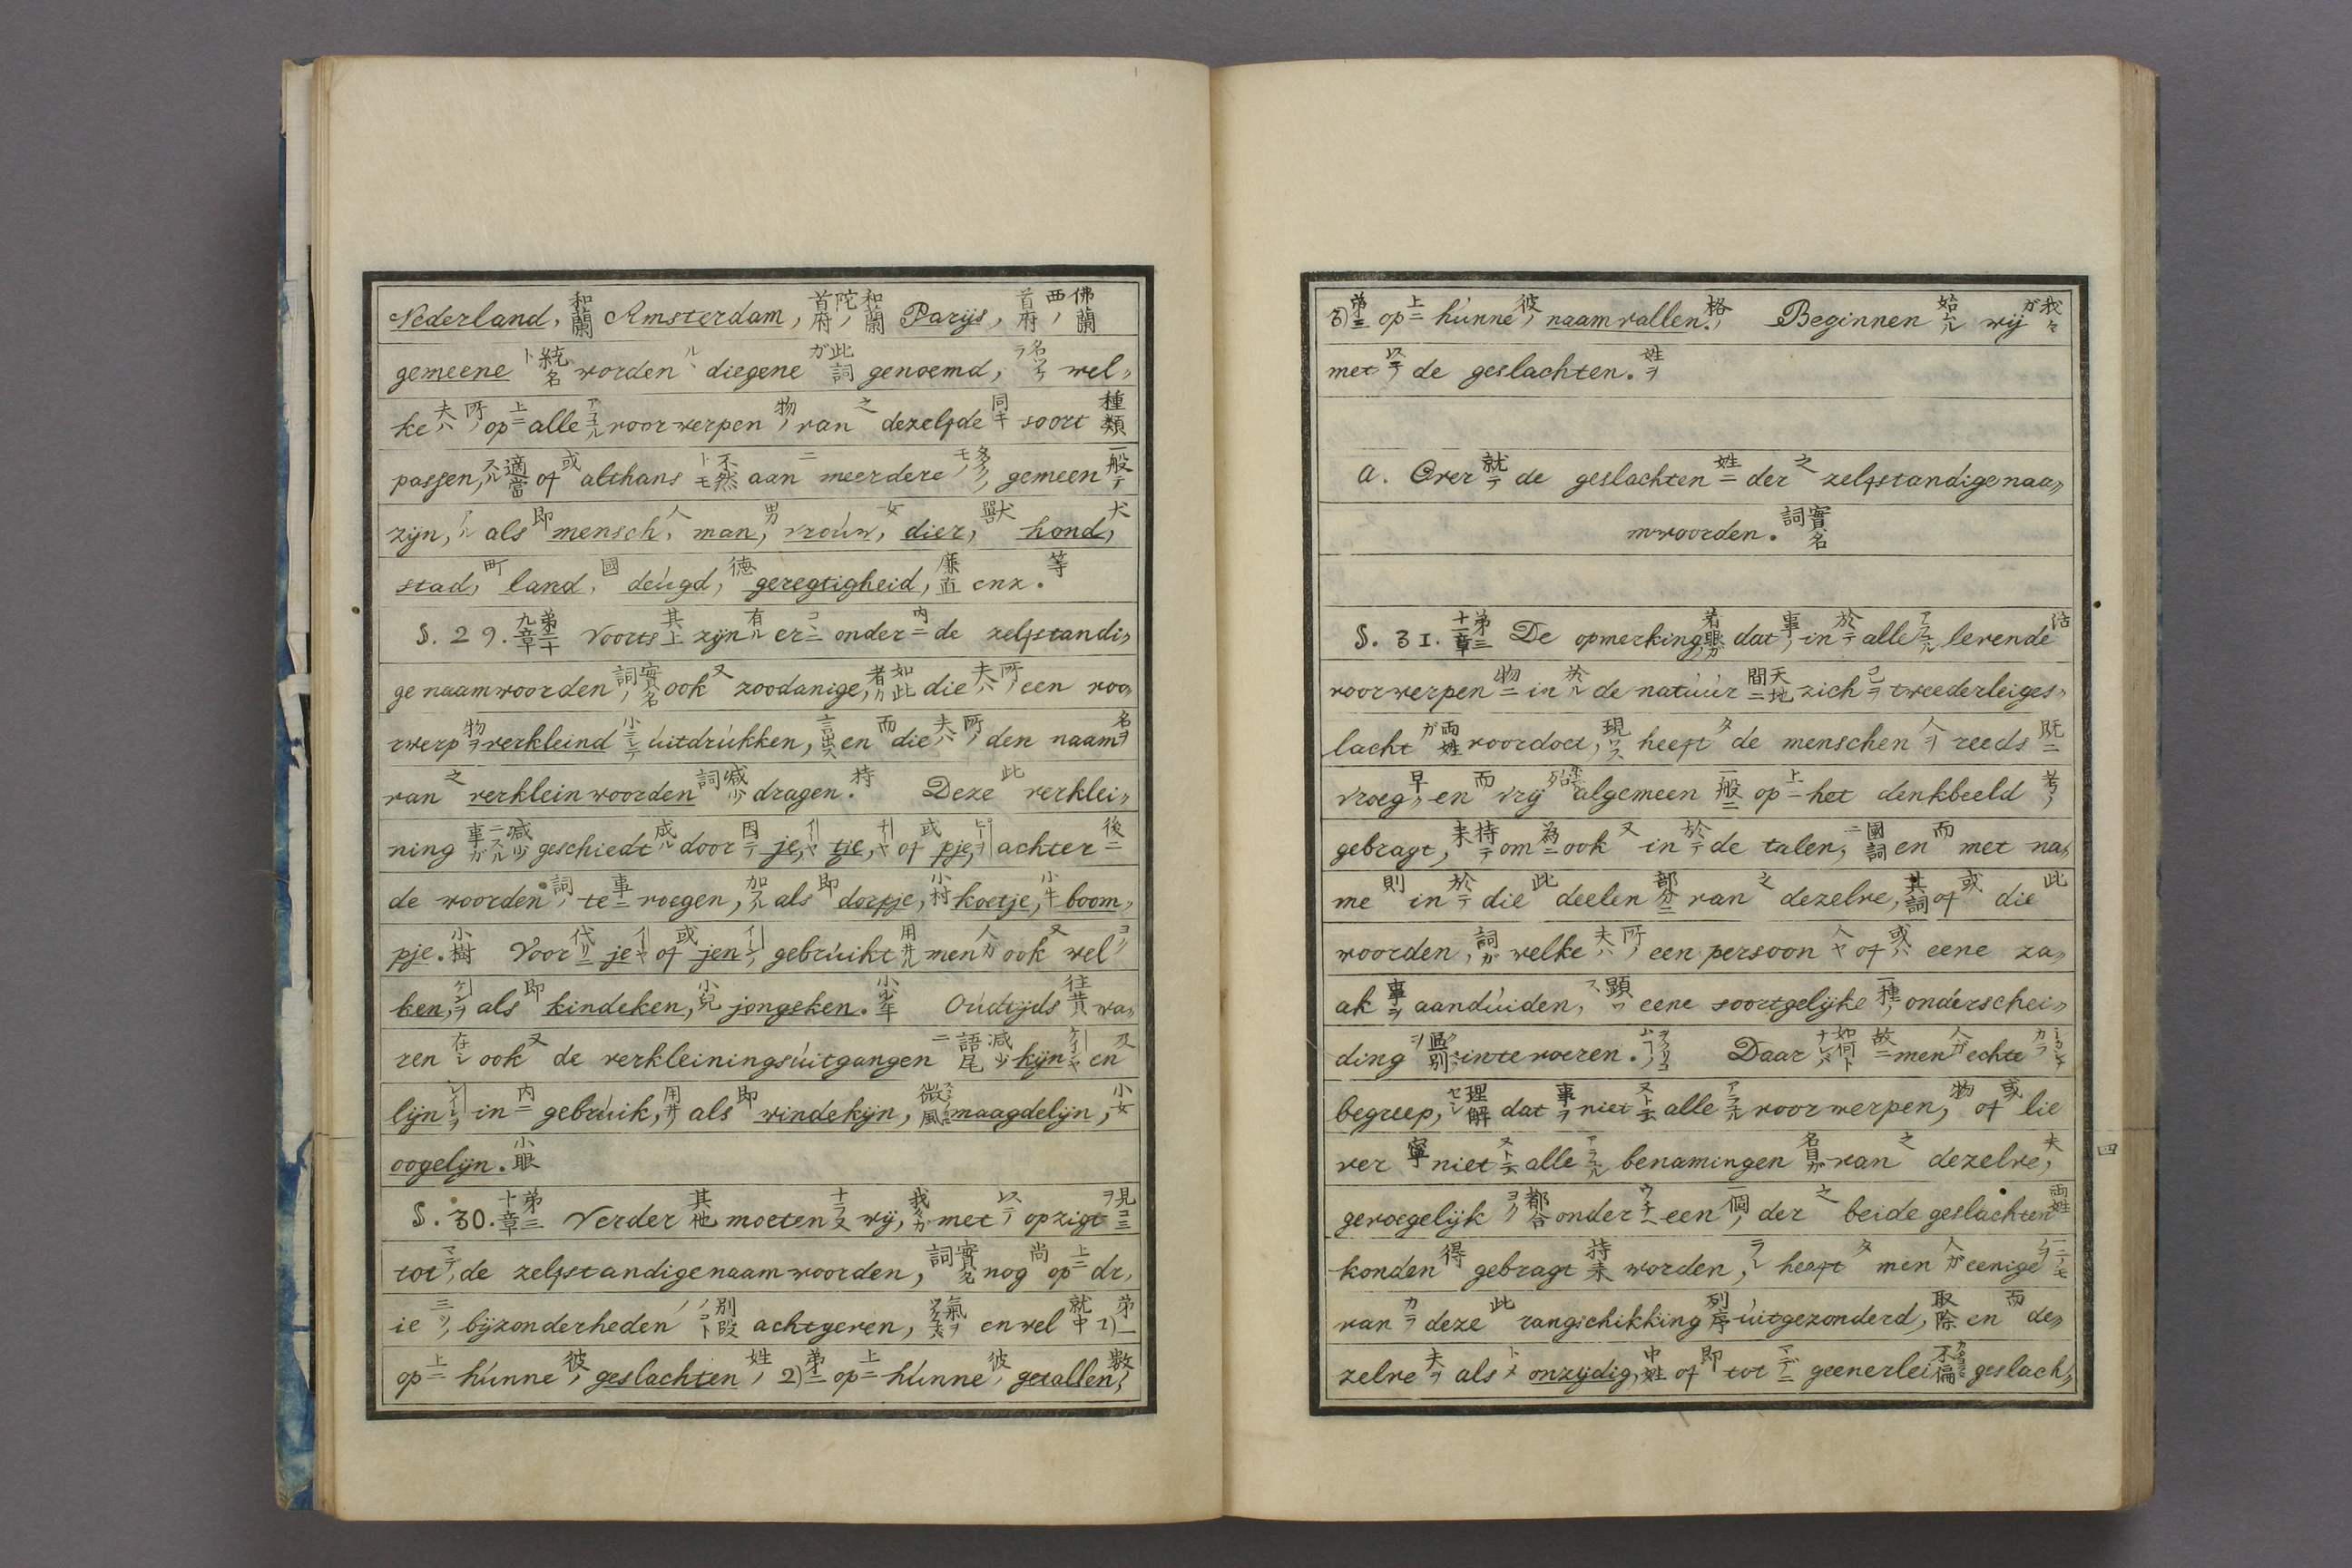 Nederland, 和蘭 Amsterdam, 和蘭陀ノ首府 Parijs, 佛蘭西ノ首府
gemeene 統名ト worden ル diegene 此詞ガ genoemd, 名ツケラ wel„
ke 夫ハ所ノ op 上ニ alle アラユル voorwerpen 物ノ van 之 dezelfde 同キ soort 種類
passen, 適當スル of 或 althans 不然トモ aan ニ meerdere gemeen 一般テ
zijn, アル als 即 mensch, 人 man, 男 vroúw, 女 dier, 獣 hond, 犬
stad, 町 land, 國 deúgd, 徳 geregtigheid, 廉直 enz. 等
§. 29. 第二十九章 Voorts 其上 zijn 有ル er コヽニ onder 内ニ de zelfstandi„
ge naamwoorden 實名詞ノ ook 又 zoodanige, 如此者ガ die 夫ハ所ノ een voo„
rwerp 物ヲ verkleind 小ニシテ úitdrúkken, 言出ス en 而 die 夫ハ所ノ den naam 名ヲ
van 之 verkleinwoorden 減少詞 dragen. 持 Deze 此 verklei„
ning 減少ニスル事ガ geschiedt 成ル door 因テ je, tje, of 或 pje, achter 後ニ
de woorden 詞ノ te 事ニ voegen, 加フル als 即 dorpje, 小村 koetje, 小牛 boom„
pje. 小樹 Voor 代リニ je of 或 jen gebrúikt 用井ル men 人ガ ook 又 wel ヨク
ken, als 即 kindeken, 小兒 jongsken. 小少年 Oúdtijds 往昔 wa„
ren 在シ ook 又 de verkleiningsúitgangen 減少語尾ニ kijn en 又
lijn in 内ニ gebrúik, 用井 als 即 windekijn, 微風 maagdelijn, 小女
oogelijn. 小眼
§. 30. 第三十章 Verder 其他 moeten wij, 我々ガ met 以テ opzigt 見コミヲ
tot マデノ de zelfstandigenaamwoorden, 實名詞 nog 尚 op 上ニ dr„
ie 三ツノ bijzonderheden 別段ノコト achtgeven, 氣ヲ en wel 就中 1) 第一
op 上ニ húnne 彼ノ geslachten 姓 2) 第二 op 上ニ húnne 彼ノ getallen, 数
3) 第三 op 上ニ húnne 彼ノ naamvallen. 格 Beginnen 始ムル wij 我々ガ
met 以テ de geslachten. 姓ヲ
a. Over 就テ de geslachten 姓ニ der 之 zelfstandigenaa„
mwoorden. 實名詞
§. 31. 第三十一章 De opmerking, 着眼ガ dat 事ノ in 於テ alle アラユル levende 活
voorwerpen 物ニ in 於ル de natúúr 天地間ニ zich 己ヲ tweederleiges„
lacht 両姓ガ voordoet, 現ハス heeft タ de menschen 人ヲ reeds 既ニ
vroeg 早ク en 而 vrij algemeen 一般ニ op 上ニ het denkbeeld 考ノ
gebragt, 持来テ om 為ニ ook 又 in 於テ de talen, 國詞ニ en 而 met na„
me 則 in 於テ die 此 deelen 部分ニ van 之 dezelve, 其詞 of 或 die 此
woorden, 詞ガ welke 夫ハ所ノ een persoon 人ヤ of 或ハ eene za„
ak 事ヲ aandúiden, 顕ワス eene soortgelijke 一種ノ onderschei„
ding 區別ヲ intevoeren. Daar 如何トナレバ故ニ men 人ガ echte
begreep, 理解セシ dat 事ヲ niet alle アラユル voorwerpen, 物 of 或 lie
ver 寧 niet alle アラユル benamingen 名目ガ van 之 dezelve, 夫
gevoegelijk 都合ヨク onder ウチニ een 一個ノ der 之 beide geslachten 両姓
konden 得 gebragt 持来 worden, ラレ heeft タ men 人ガ eenige
van カラ deze 此 rangschikking 列序ノ úitgezonderd, 取除 en 而 de„
zelve 夫ヲ als ト onzijdig, 中姓 of 即 tot マデニ geenerlei 不偏 geslach„
四